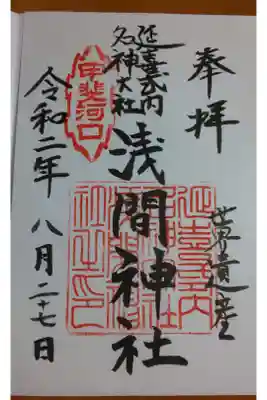 奉拝
世界遺産
延喜式内
名神大社
浅間神社
甲斐河口
令和二年 八月二十七日
延喜式内